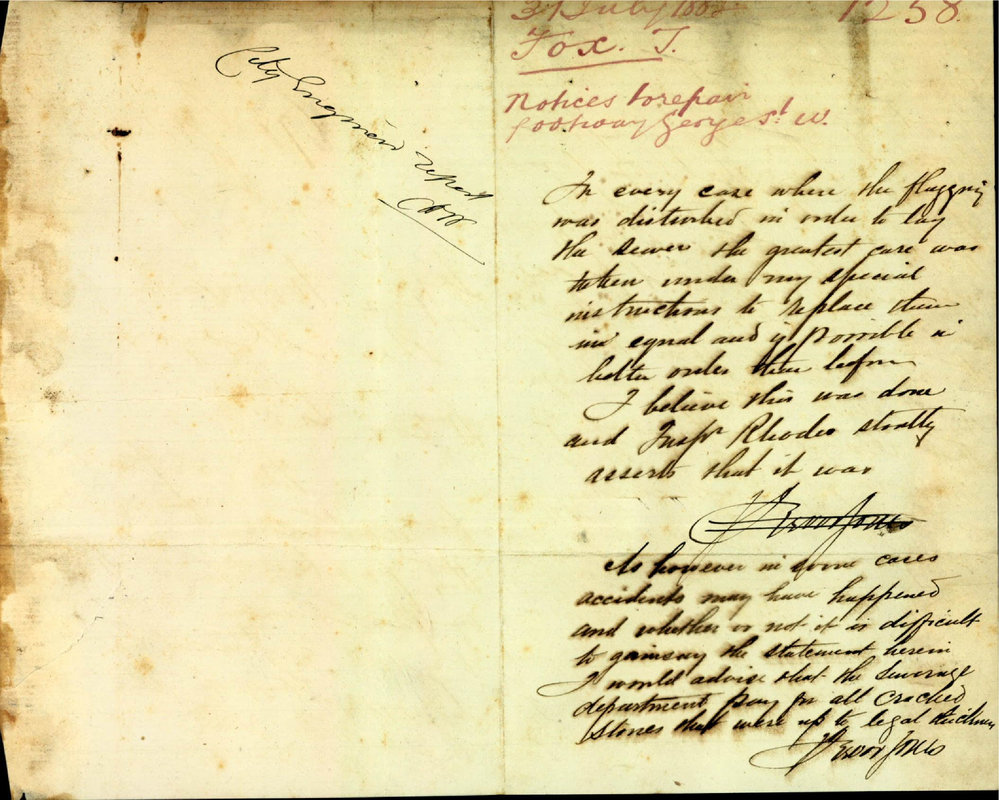 City Engineers report
31 July 188
1258.
Fox. T.
Notices to repair
footway George St. W.
In every case where the flagging
was disturbed in order to lay
the sewer the greatest care was
taken under my special
instructions to replace them
in equal and if possible in
better order than before
I believe this was done
and Inspr Rhodes stoutly
asserts that it was
Trevor Jones
As however in some cases
accidents may have happened
and whether or not it is difficult
to gainsay the statement herein
I would advise that the Sewerage
department pay for all cracked
stones that were up to legal thickness
Trevor Jones